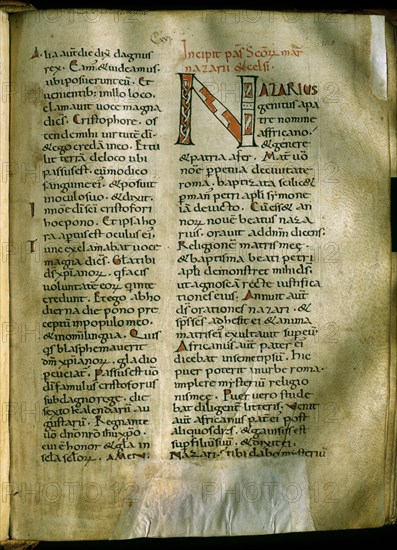 Alia aut die dix dagnus
rex. Eam & uideamus.
ubi posuerunt eu. Et
uenientib: in illo loco.
clamauit uoce magna
dicš. Cristophore. os
tende mihi uirtute di.
& ego creda in eo. Et tu
lit terra de loco ubi
passus est. cu modico
sanguine ei. & posuit
in oculo suo. & dixit.
in noe di sei cristofori
hoc pono. Et ipsa ho
ra aptus est oculus ei.
Tunc exclamabat uoce
magna dicš. Gla tibi
ds xpianorꝝ. q facis
uoluntate eorꝝ q in te
credunt. Et ego ab ho
dierna die pono pre
ceptu in populo meo.
& in om lingua. Quis
qs blasphemauerit
dm xpianorꝝ. gladio
peueiat. Passus est uo
di famulus cristoforus
sub dagno rege. die
sexto kalendarii au
gustarii. Regnante
uo dno nro ihu xpo.
cui e honor & gla in
scla sclorꝝ. Amen.
Incipit pas scorꝝ mar
nazarii & celsi.
NAZARIUS
genitus a pa
tre nomine
affricano.
& genere
& patria afer. Mat uo
noe ppenia de ciuitate
roma, baptizata
petri apli
deuesto. Cu esset an
norꝝ noue beatus naza
rius. orauit ad dnm dicens.
Religione matris mee.
& baptisma beati petri
apli demonstret mihi ds.
ut agnosca recte iustifica
tiones eius. Annuit aut
ds orationes nazari. &
spsses adhesit ei & anima
matris ei exultauit
Affricanus aut pater ei
dicebat in semetipsu. Hic
puer poterit in urbe roma.
implere mysteriu religio
nis mee. Puer uero stude
bat diligent litteris. Venit
aut affricanus pat ei post
aliquos dies. & gauisus est
sup filiu suu. & dixit ei.
Nazari. tibi dabo mysteriu
PHOTO12